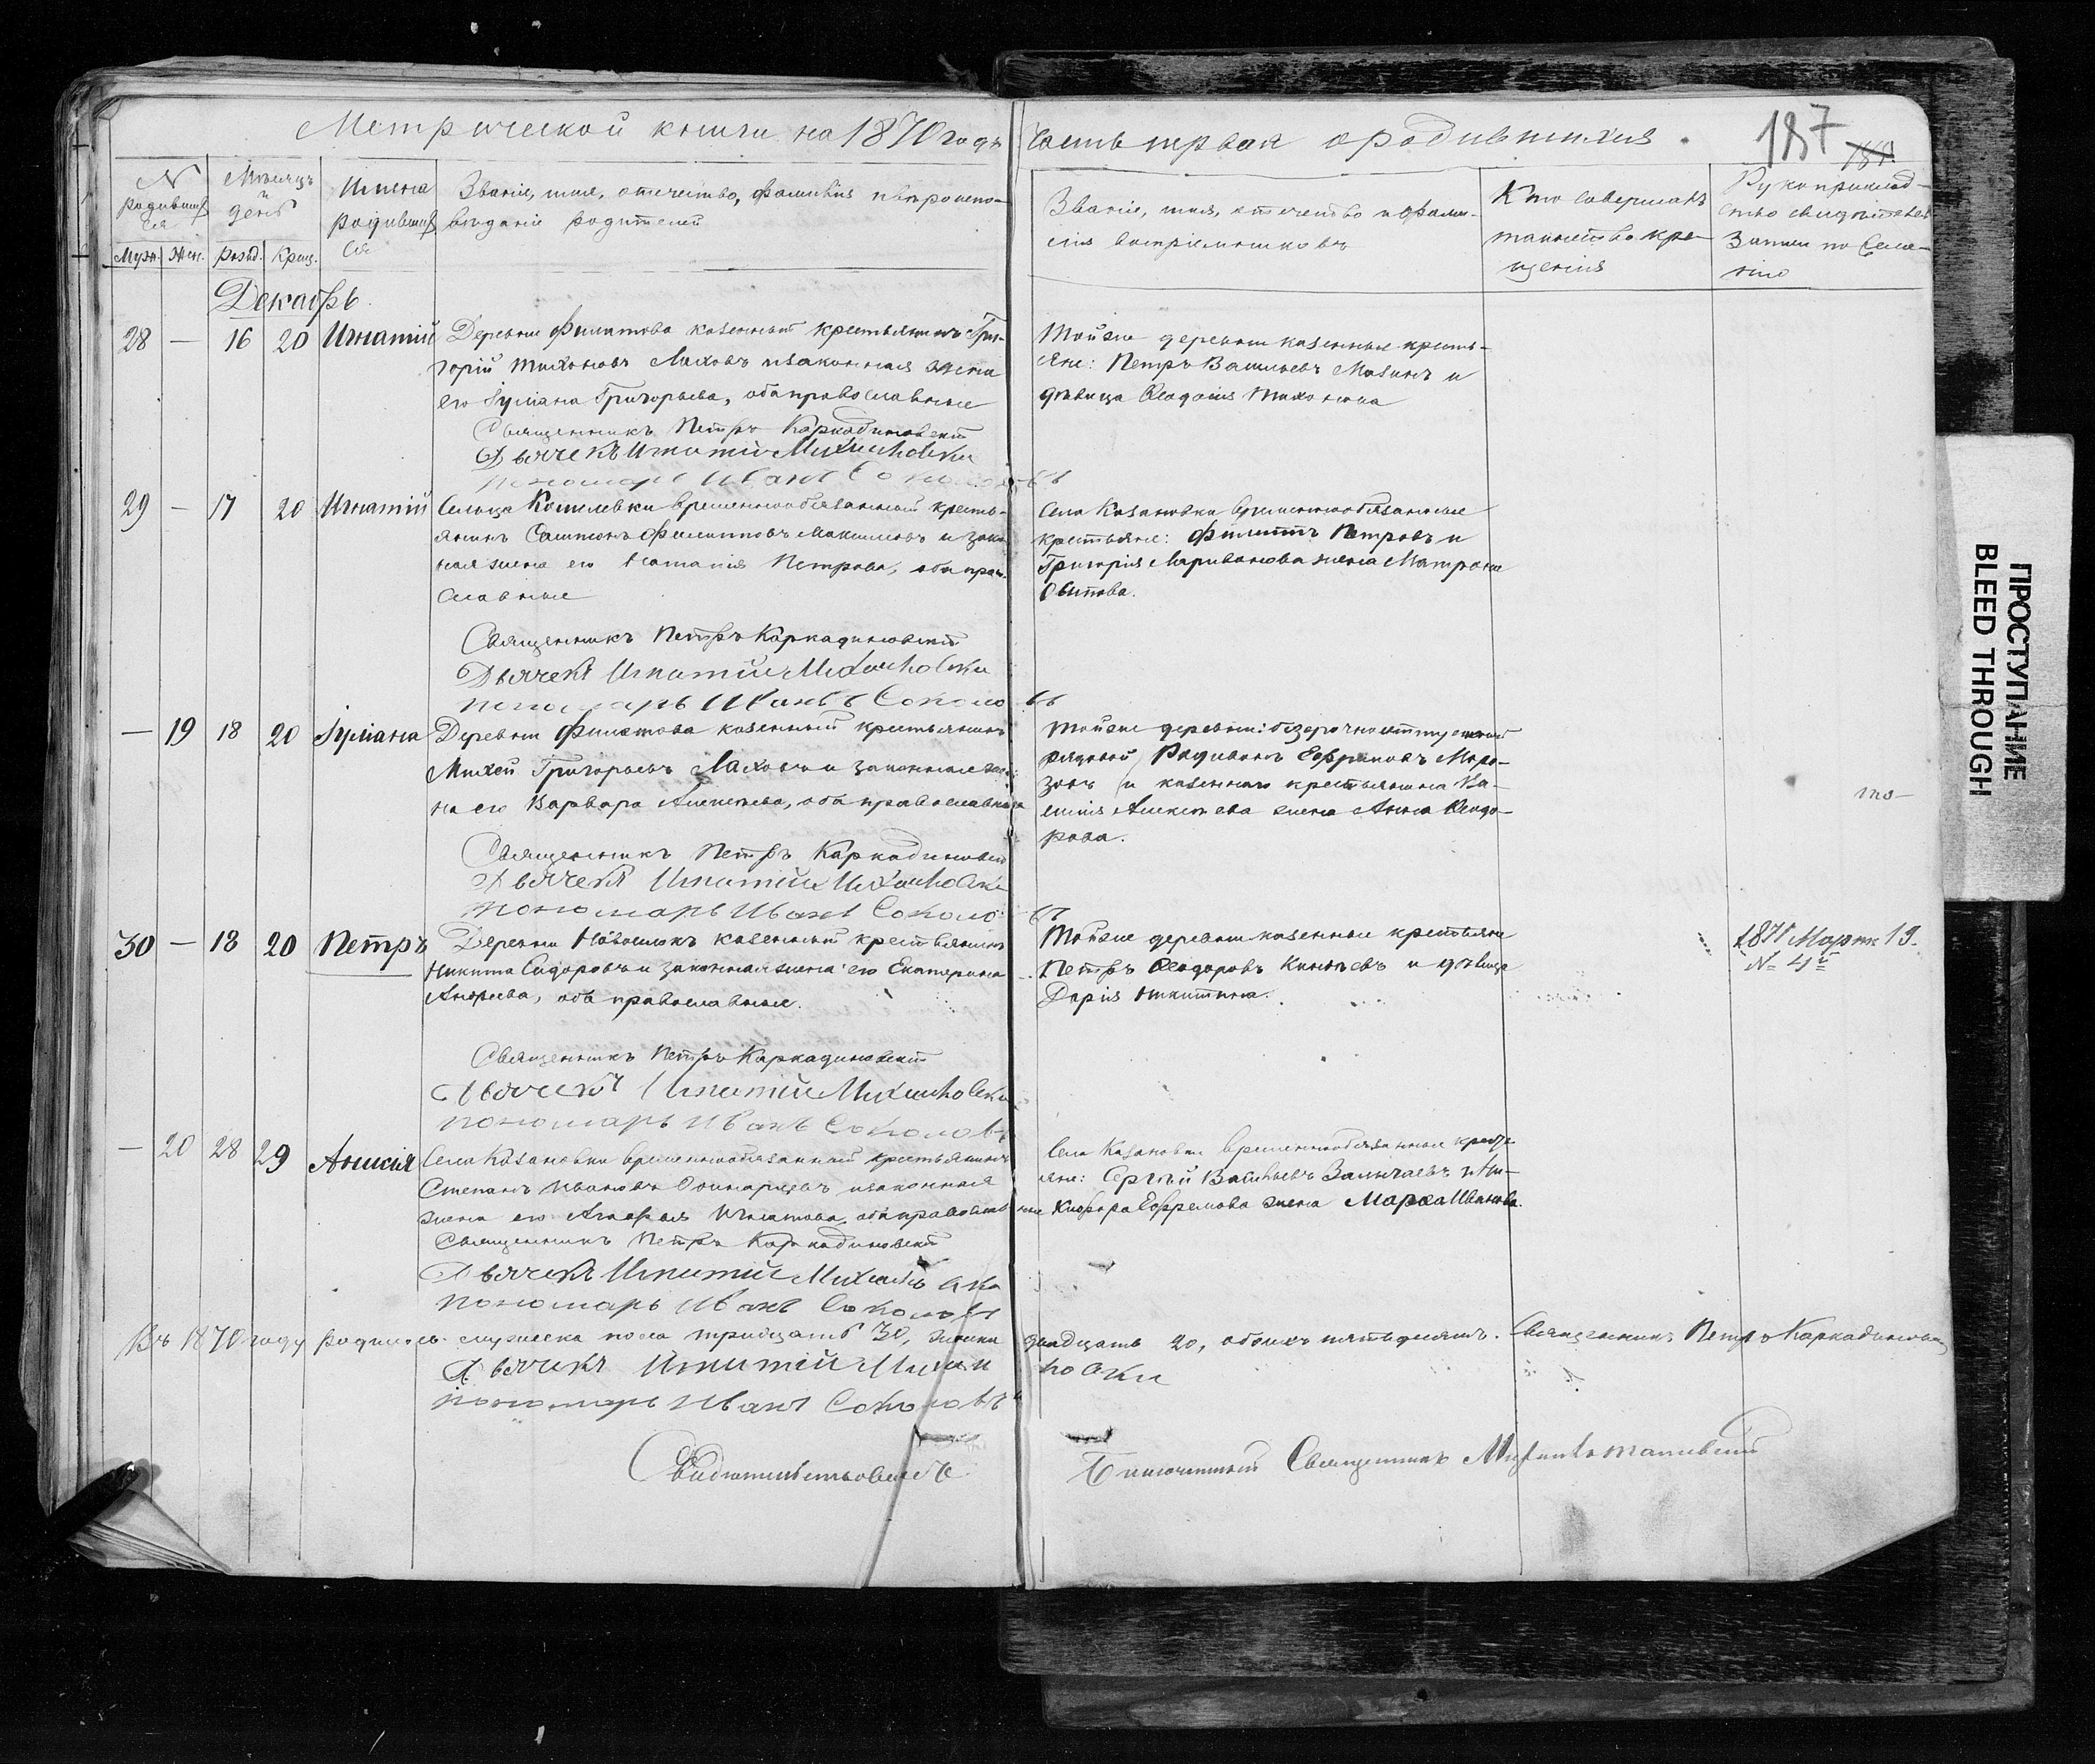 Метрической книги на 1870 годъ
часть первая о родившихся.
187
N родивших
ся
Муж. Жен.
Мѣсяцъ
и
день
рожд. Крещ.
Имена
родивших
ся
Званіе, имя, отечество, фамилія и вѣроиспо-
вѣданіе родителей
Званіе, имя, отечество и фами-
лія воспріемниковъ
Кто совершалъ
таинство кре-
щенія
Рукоприклад-
ство свидѣтелей
записи по желa-
нію
Декабрь.
28 — 16 20 Игнатій
Деревни Филатова казенный крестьянинъ Гри-
горій Тихоновъ Ляховъ и законная жена
его Іуліана Григорьева, оба православные
Священникъ Петръ Каркадиновскій
Дьячекъ Игнатій
пономарь Иванъ Соколовъ
Тойже деревни казенные кресть-
яне: Петръ Васильевъ Мазинъ и
дѣвица Ѳеодосія Тихонова
29 — 17 20 Игнатій
Сельца Кошелевки временнообязанный кресть-
янинъ Филипповъ Максимовъ и закон
ная жена его Наталія Петрова, оба право-
славные
Священникъ Петръ Каркадиновскій
Дьячекъ Игнатій
пономарь Иванъ Соколовъ
Села Казановки временнообязанные
крестьяне: Филиппъ Петровъ и
Григорія жена Матрона
Осипова.
— 19 18 20 Іуліана
Деревни Филатова казенный крестьянинъ
Михей Григорьевъ Ляховъ и законная же-
на его Варвара Алексѣева, оба православные
Священникъ Петръ Каркадиновскій
Дьячекъ Игнатій
пономарь Иванъ Соколовъ
Тойже деревни: безсрочноотпускной
рядовой Родивонъ Ефремовъ Моро-
зовъ и казеннаго крестьянина Ва-
силія Алексѣева жена Анна Ѳеодо-
рова.
30 — 18 20 Петръ
Деревни казенный крестьянинъ
Никита Сидоровъ и законная жена его Екатерина
Андреева, оба православные.
Священникъ Петръ Каркадиновскій
Дьячекъ Игнатій
пономарь Иванъ Соколовъ
Тойже деревни казенные крестьяне
Петръ Ѳеодоровъ и дѣвица
Дарія Никитина.
1871 Марта 19.
— 20 28 29 Анисія
Села Казановки временнообязанный крестьянинъ
Степанъ Ивановъ и законная
жена его Игнатова, оба православные
Священникъ Петръ Каркадиновскій
Дьячекъ Игнатій
пономарь Иванъ Соколовъ
Села Казановки временнообязанные кресть-
яне: Сергѣй Васильевъ и Ни-
кифора Ефремова жена Марѳа Иванова.
Въ 1870 году родилось мужеска пола тридцать 30, женска двадцать 20, обоихъ пятьдесятъ. Священникъ Петръ Каркадиновскій
Дьячекъ Игнатій
пономарь Иванъ Соколовъ
Свидѣтельствовалъ
Благочинный Священникъ
ПРОСТУПАНИЕ
BLEED THROUGH